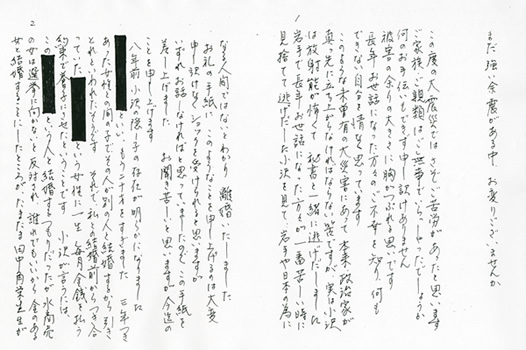 まだ強い余震がある中、お変りございませんか。
この度の大震災ではさぞご苦労があったと思います
ご家族・ご親類はご無事でいらっしゃったでしょうか
何のお手伝いもできず申し訳ありません
被害の余りの大きさに胸がつぶれる思いです
長年お世話になった方々のご不幸を知り、何も
できない自分を情なく思っています
このような未曾有の大災害にあって本来政治家が
真っ先に立ち上がらなければならない筈ですが、実は小沢
は放射能が怖くて秘書と一緒に逃げだしました
岩手で長年お世話になった方々が一番苦しい時に
見捨てて逃げだした小沢を見て、岩手や日本の為に
1
なる人間ではないとわかり離婚いたしました
お礼の手紙にこのようなことを申し上げるのは大変
申し訳けなくショックを受けられると思いますが
いずれお話しなければと思っていましたのでこの手紙を
差し上げました お聞き苦しいと思いますが今迄の
ことを申し上げます
八年前小沢の隠し子の存在が明らかになりました
といい、もう二十才をすぎました 三年つき
あった女性との間の子でその人が別の人と結婚するから引き
とれといわれたそうです それで私との結婚前からつき合
っていた という女性に一生毎月金銭を払う
約束で養子にさせたということです 小沢が言うには、
この という人と結婚するつもりだったが水商売
の女は選挙に向かないと反対され、誰れでもいいから金のある
女と結婚することにしたところが、たまたま田中角栄先生が
2